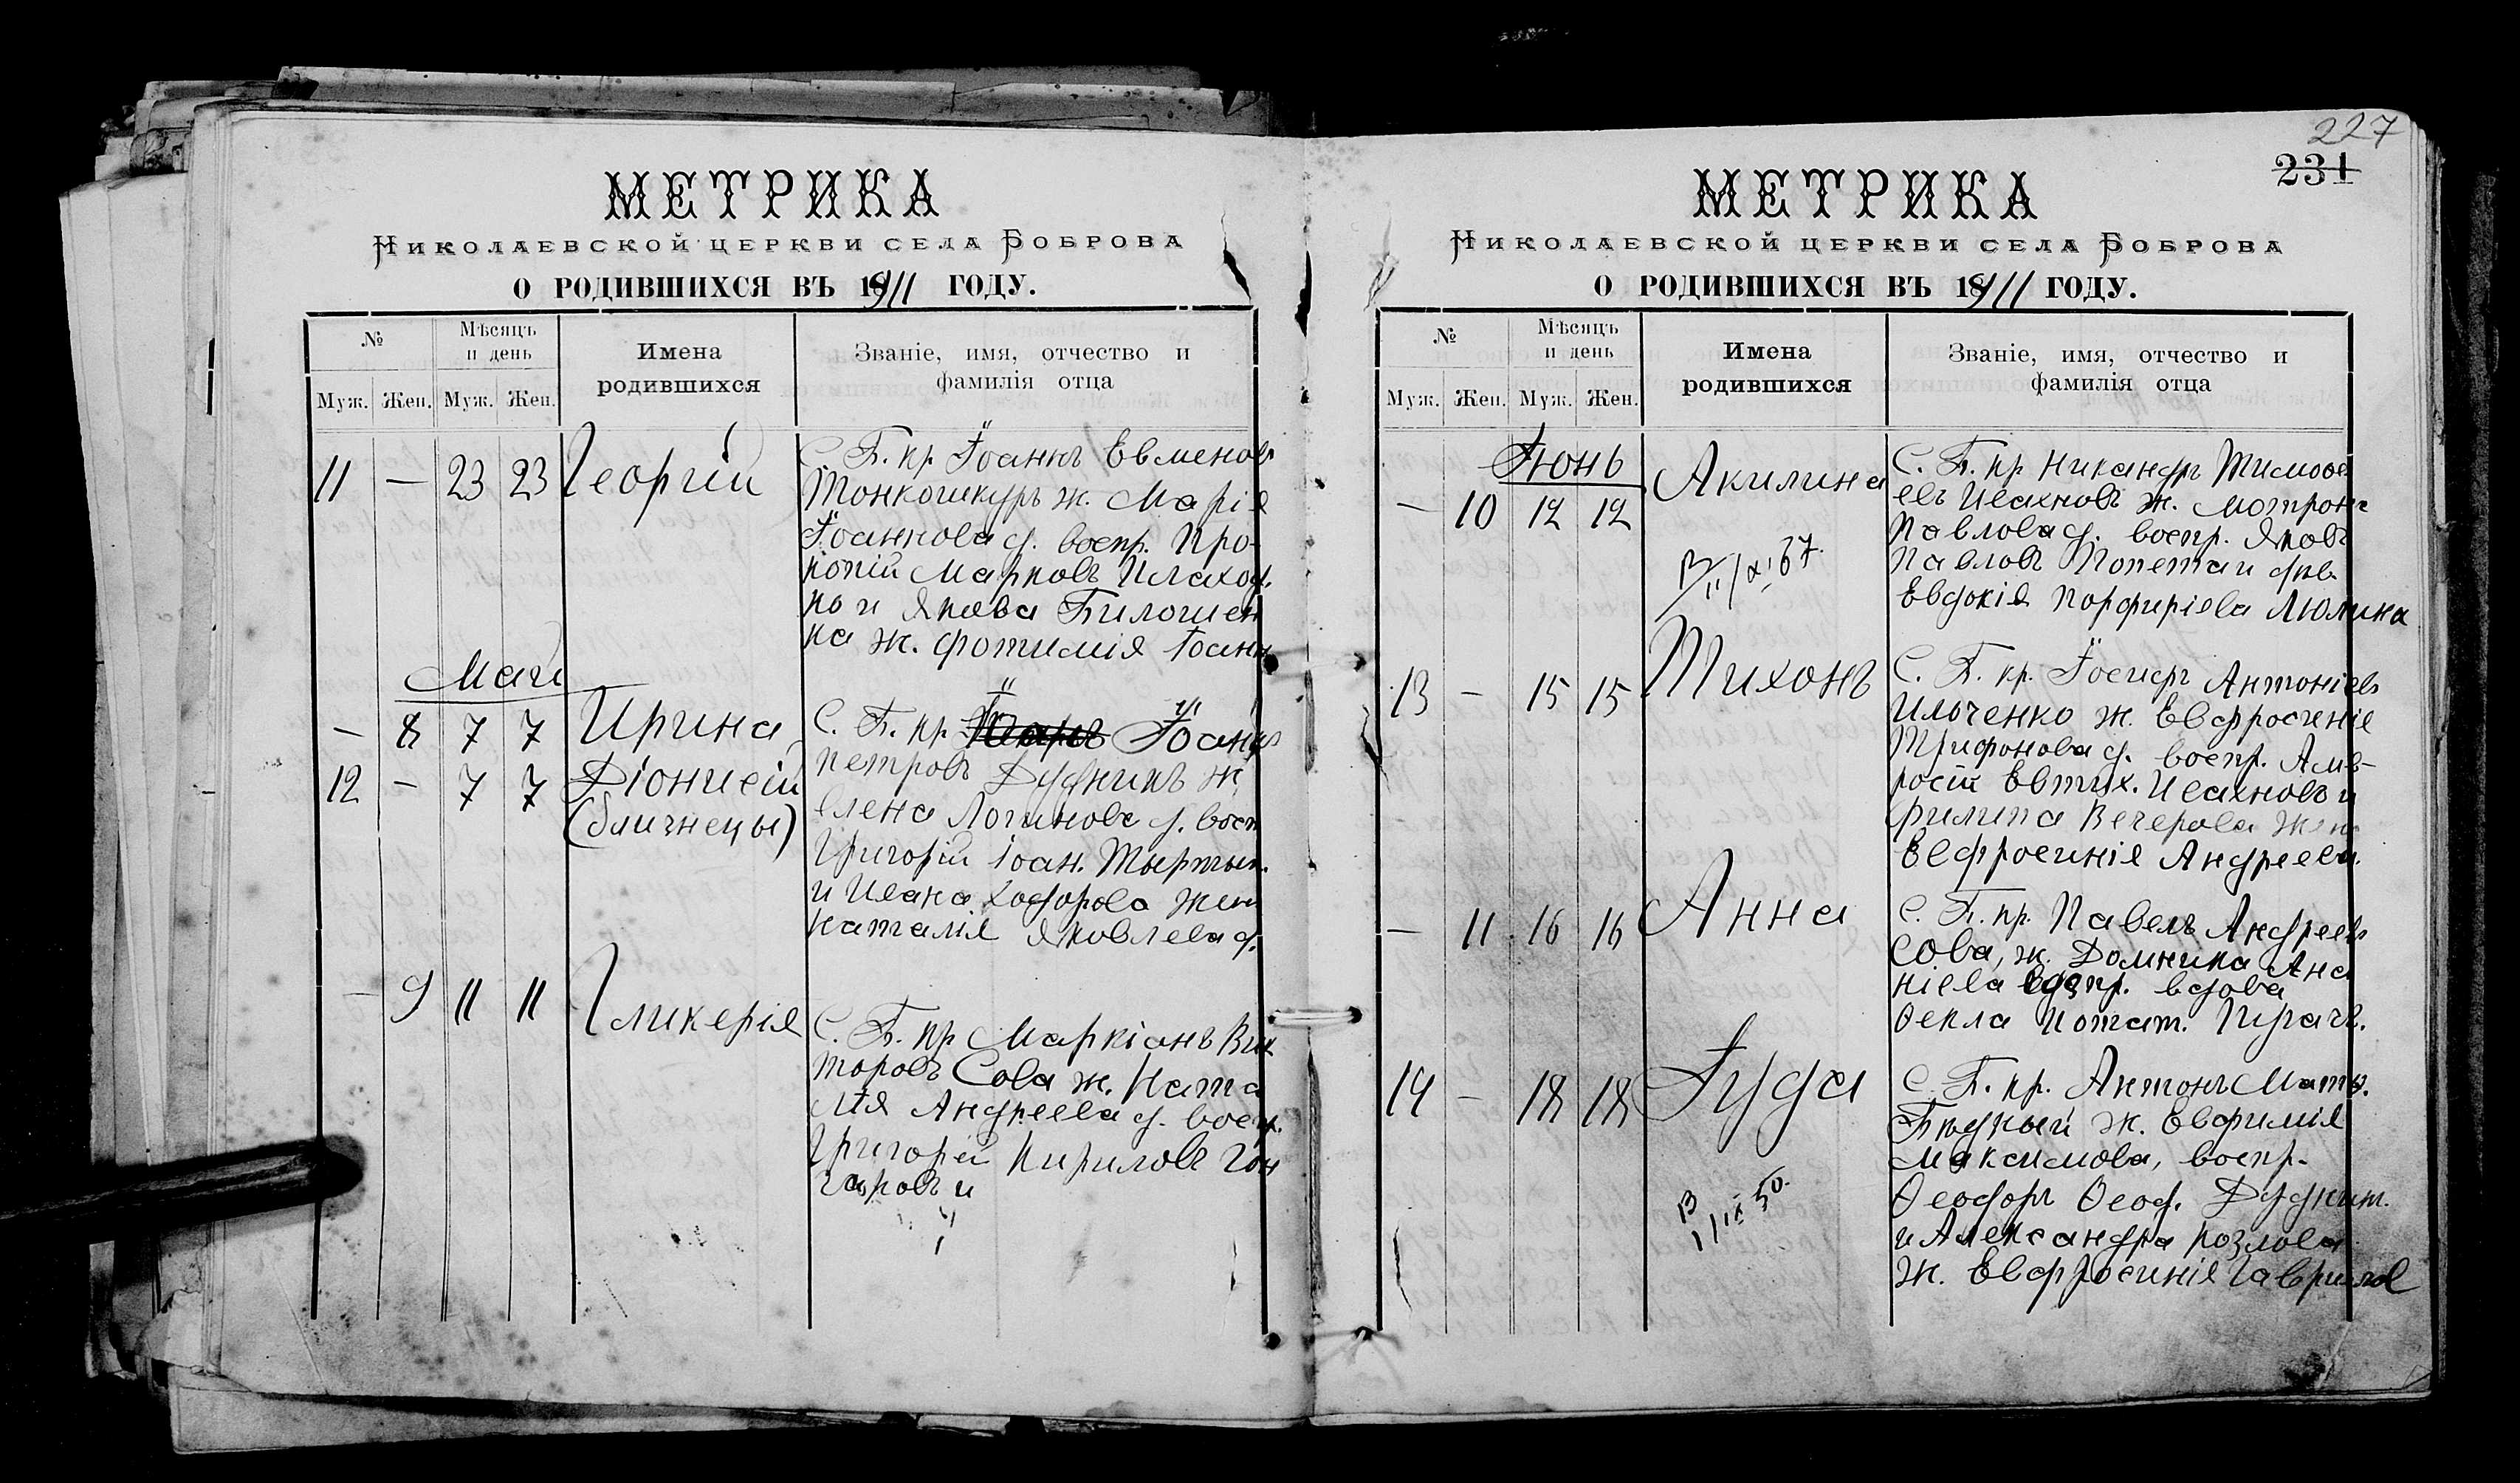 МЕТРИКА
НИКОЛАЕВСКОЙ ЦЕРКВИ СЕЛА БОБРОВА
О РОДИВШИХСЯ ВЪ 1911 ГОДУ.
№
Мѣсяцъ и день
Имена родившихся
Званіе, имя, отчество и фамилія отца
Муж. Жен. Муж. Жен.
11 — 23 23 Георгій
С. Б. кр. Іоаннъ Евменовъ
Тонкошкуръ ж. Марія
Іоаннова д. воспр. Про-
копій Марковъ
и Якова Билошен
ка ж. Фотинія Іоанн
Май
— 8 7 7 Ирина
12 — 7 7 Діонисій
(близнецы)
С. Б. кр. Іоаннъ
Петровъ Дудникъ ж.
Елена Логинова д. восп
Григорій Іоан.
и Ивана Ходорова жен
Наталія Яковлева д.
— 9 11 11 Гликерія
С. Б. кр Маркіанъ Вик
торовъ Сова ж. Ната
лія Андреева д. воспр.
Григорей Кириловъ Гон
чаровъ и
227
231
МЕТРИКА
НИКОЛАЕВСКОЙ ЦЕРКВИ СЕЛА БОБРОВА
О РОДИВШИХСЯ ВЪ 1911 ГОДУ.
№
Мѣсяцъ и день
Имена родившихся
Званіе, имя, отчество и фамилія отца
Муж. Жен. Муж. Жен.
Іюнь
— 10 12 12 Акилина
С. Б. кр Никандръ Тимоѳе
евъ Исахновъ ж. Мотрона
Павлова д. воспр. Яковъ
Павловъ
Евдокія Порфиріева
13 — 15 15 Тихонъ
С. Б. кр. Іосифъ Антоніевъ
Ильченко ж. Евфросиніе
Трифонова д. воспр. Амв-
росій Евтих. Исахновъ и
Филипа Вечерова жен
Евфросинія Андреева
— 11 16 16 Анна
С. Б. кр. Павелъ Андреевъ
Сова, ж. Домника Ана
ніева воспр. вдова
Ѳекла
14 — 18 18 Іуда
С. Б. кр. Антонъ
Бѣдный ж. Евфимія
Максимова, воспр.
Ѳеодоръ Ѳеод.
и Александра Козлова
ж. Евфросинія Гаврилов